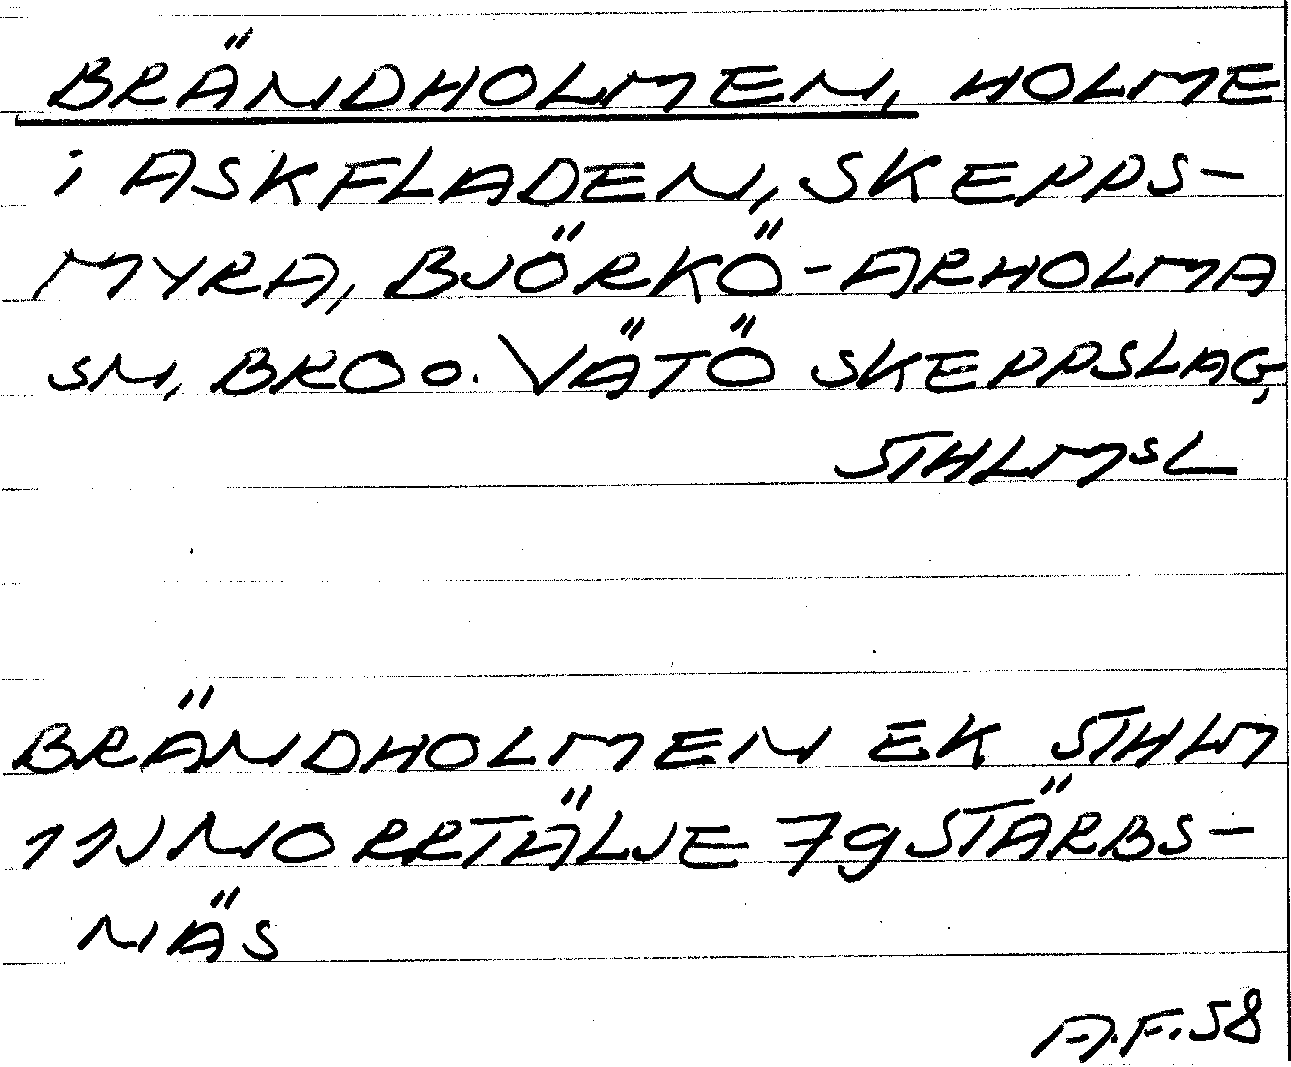 BRÄNDHOLMEN, HOLME
i ASKFLADEN, SKEPPS-
MYRA, BJÖRKÖ-ARHOLMA
SN, BRO o. VÄTÖ SKEPPSLAG,
STHLMsL
BRÄNDHOLMEN EK STHLM
11J NORRTÄLJE 79 STÄRBS-
NÄS
A.F. 58